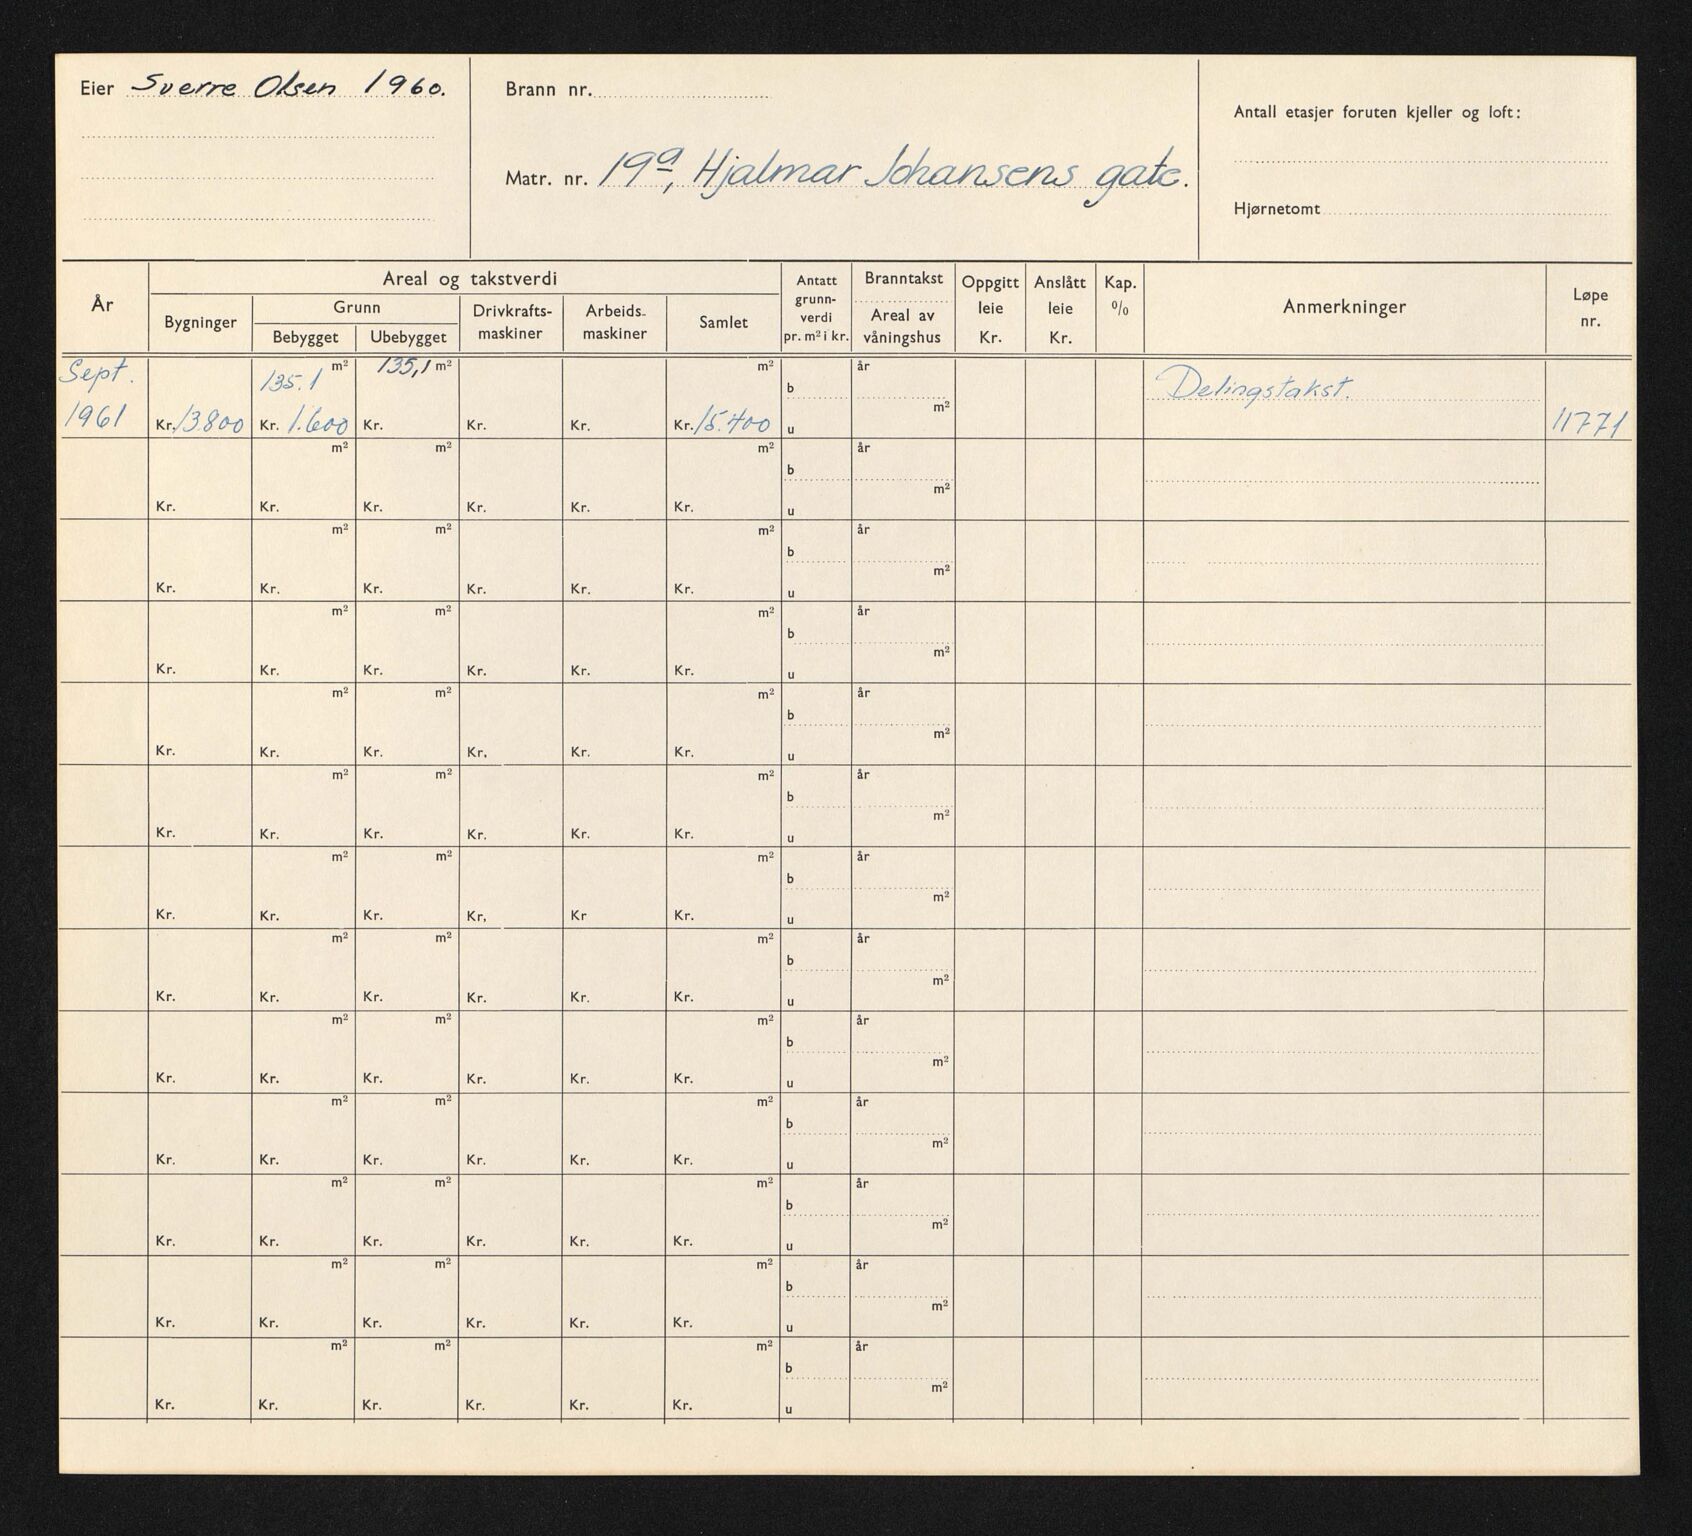 Eier Sverre Olsen 1960.
Brann nr.
Matr. nr. 19a, Hjalmar Johansens gate.
Antall etasjer foruten kjeller og loft:
Hjørnetomt
År
Areal og takstverdi
Bygninger
Grunn
Bebygget
Ubebygget
Drivkrafts-
maskiner
Arbeids-
maskiner
Samlet
Antatt
grunn-
verdi
pr. m² i kr.
Branntakst
Areal av
våningshus
Oppgitt
leie
Kr.
Anslått
leie
Kr.
Kap.
%
Anmerkninger
Løpe
nr.
Sept. 135.1 m² 135,1 m² m² b år Delingstakst.
1961 Kr. 13.800 Kr. 1.600 Kr. Kr. Kr. Kr. 15.400 u m² 11771
m² m² m² b år
Kr. Kr. Kr. Kr. Kr. Kr. u m²
m² m² m² b år
Kr. Kr. Kr. Kr. Kr. Kr. u m²
m² m² m² b år
Kr. Kr. Kr. Kr. Kr. Kr. u m²
m² m² m² b år
Kr. Kr. Kr. Kr. Kr. Kr. u m²
m² m² m² b år
Kr. Kr. Kr. Kr. Kr. Kr. u m²
m² m² m² b år
Kr. Kr. Kr. Kr. Kr Kr. u m²
m² m² m² b år
Kr. Kr. Kr. Kr. Kr. Kr. u m²
m² m² m² b år
Kr. Kr. Kr. Kr. Kr. Kr. u m²
m² m² m² b år
Kr. Kr. Kr. Kr. Kr. Kr. u m²
m² m² m² b år
Kr. Kr. Kr. Kr. Kr. Kr. u m²
m² m² m² b år
Kr. Kr. Kr. Kr. Kr. Kr. u m²
m² m² m² b år
Kr. Kr. Kr. Kr. Kr. Kr. u m²